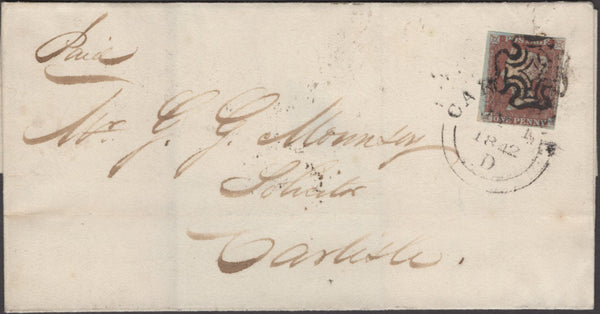 Paid
POSTAGE
ONE PENNY
1842
D
Mr. G. G. Mounsey
Solicitor
Carlisle.